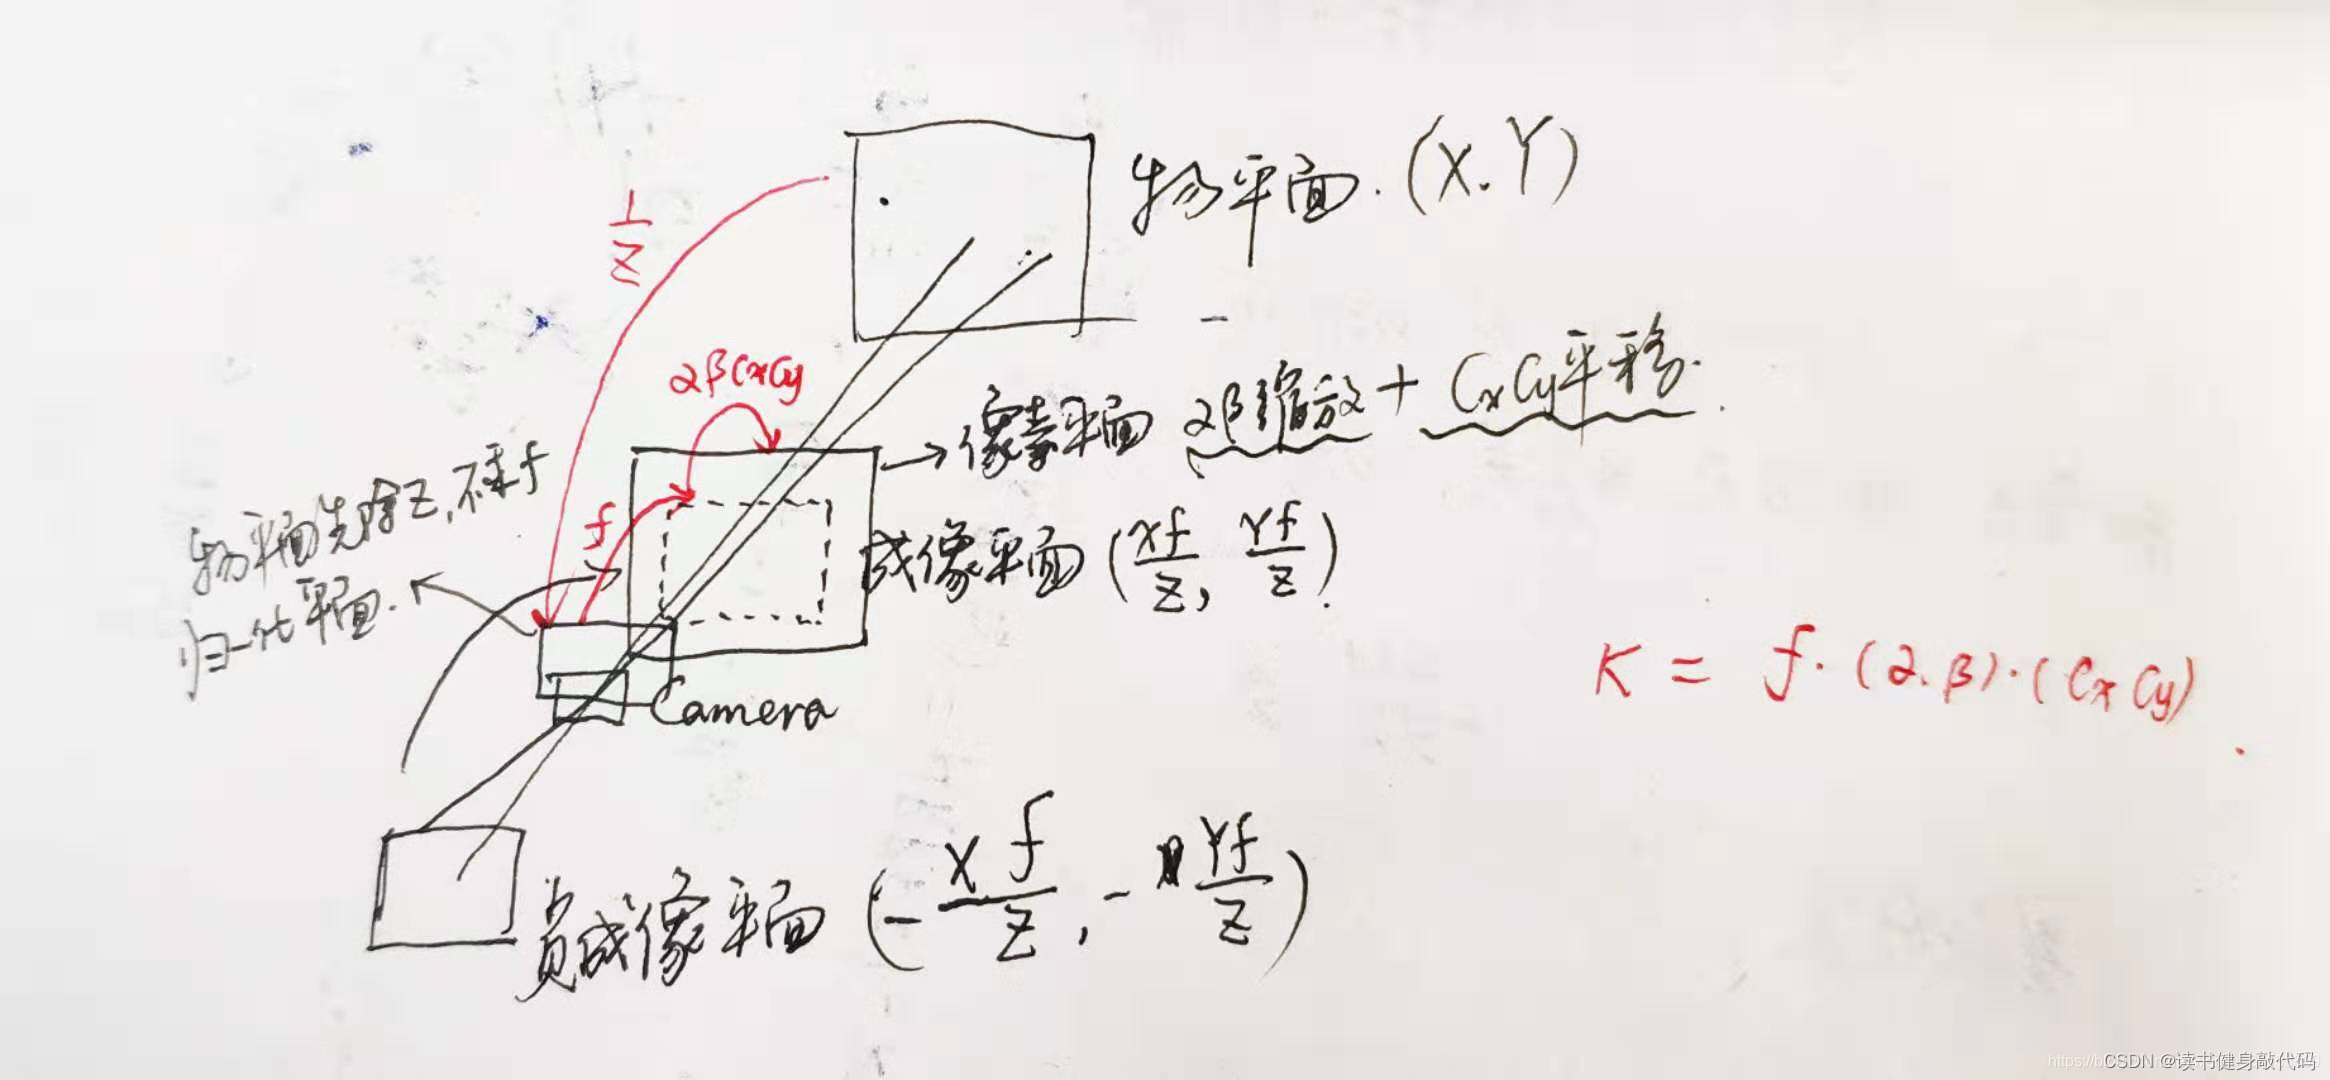 物平面.(X.Y)
1/Z
αβCxCy
→像素平面 αβ缩放+CxCy平移.
物平面先除Z,不乘f
归一化平面.
f
成像平面(Xf/Z, Yf/Z).
K = f·(α.β)·(Cx Cy).
Camera
负成像平面(-Xf/Z, -Yf/Z)
CSDN @读书健身敲代码